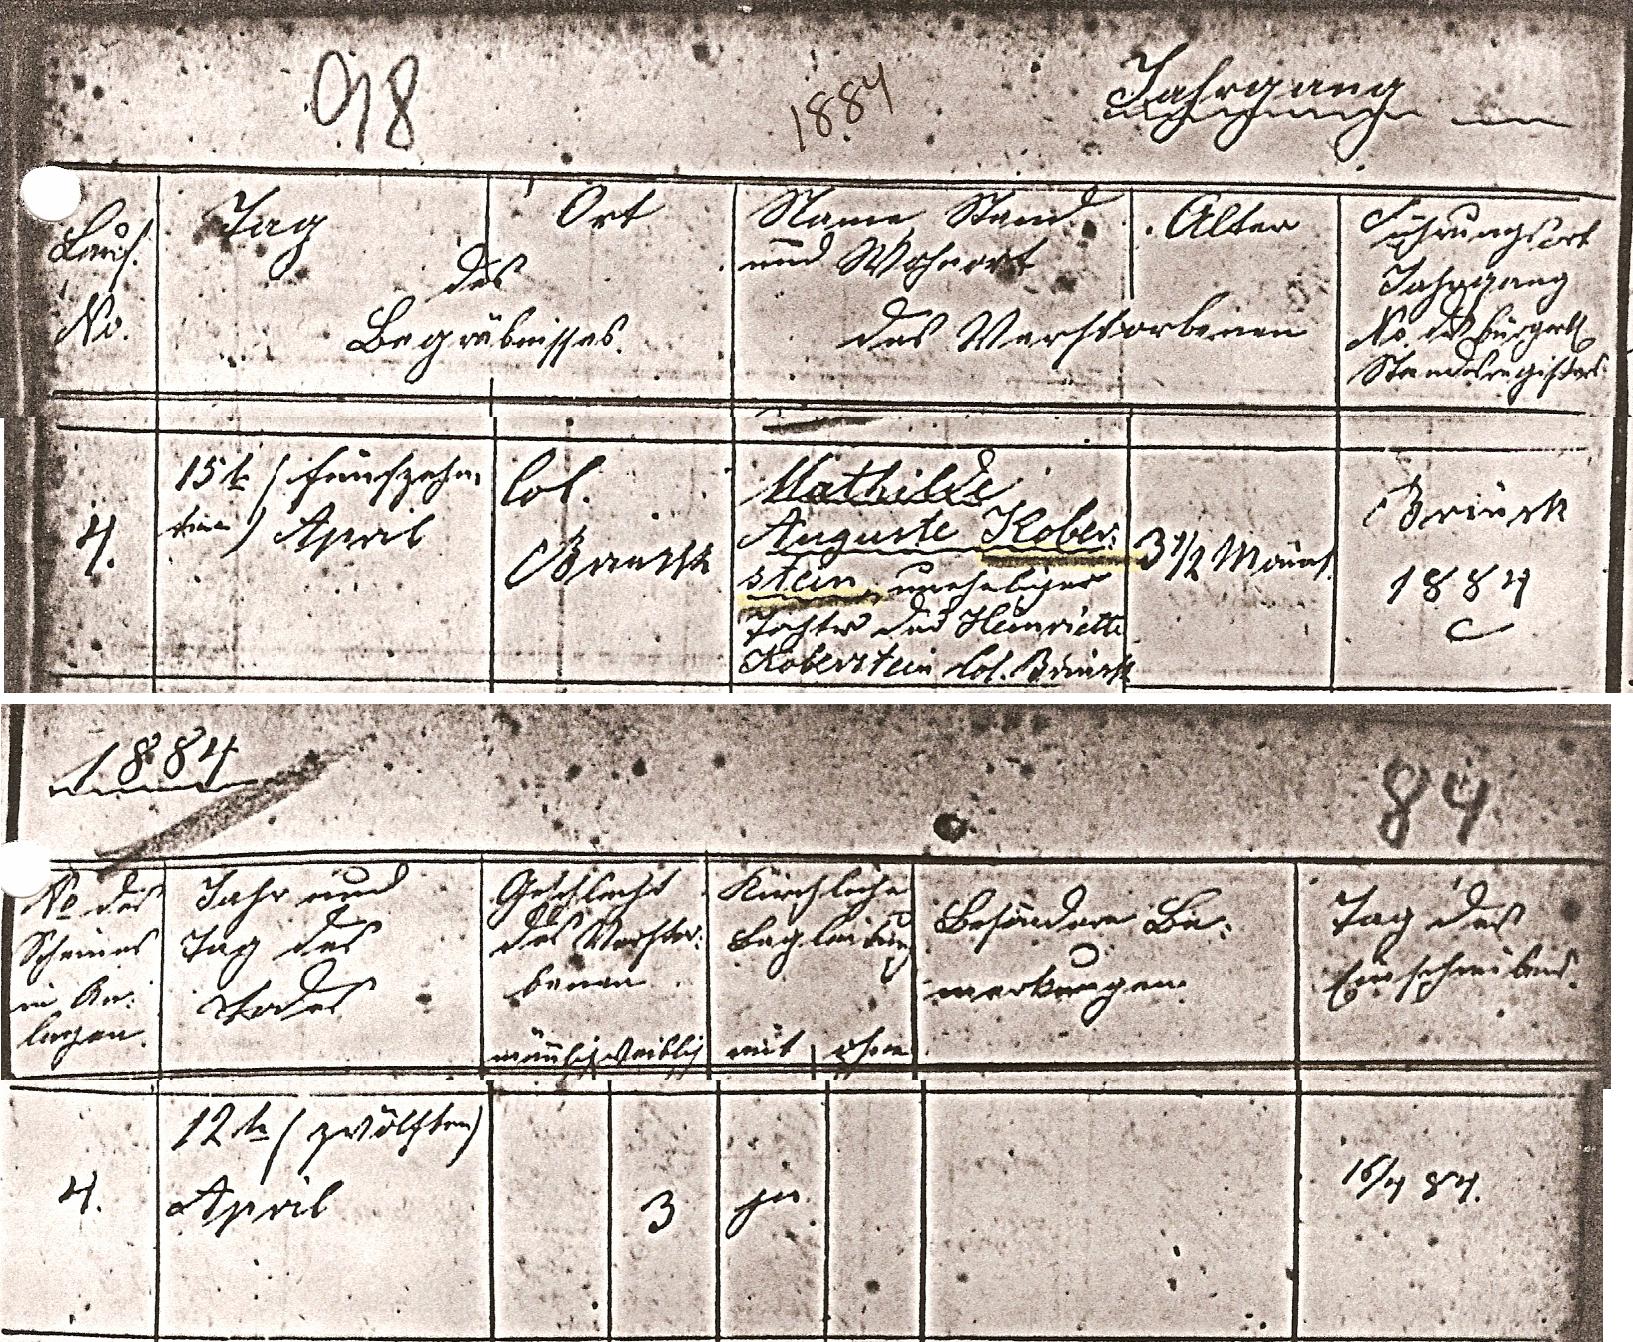 98
1884
Jahrgang
Lauf.
No.
Tag
Ort
des
Begräbnisses.
Name, Stand
und Wohnort
Alter
des Verstorbenen
Führungsort
Jahrgang
No. des bürgerl.
Standesregisters
4.
15t (fünfzehn-
ten) April
Col.
Brinsk
Mathilde
Auguste Kober-
stein, unehelige
Tochter der Heinriette
Koberstein Col. Brinsk
3 1/2 Monat
Brinsk
1884
C
1884
84
No des
Scheines
in An-
lagen.
Jahr und
Tag des
Todes
Geschlecht
des Verstor-
benen
männlich weiblich
Kirchliche
Begleitung
mit ohne
Besondere Be-
merkungen.
Tag des
Einschreibens.
4.
12ten (zwölften)
April
3
ja
16/4 84.